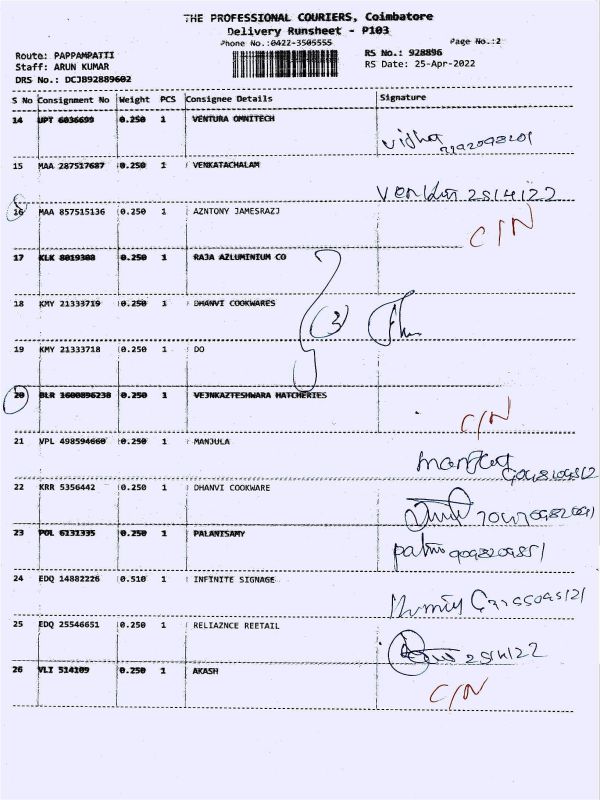 THE PROFESSIONAL COURIERS, Coimbatore
Delivery Runsheet - P103
Phone No.:0422-3505555
Page No.:2
Route: PAPPAMPATTI
Staff: ARUN KUMAR
DRS No.: DCJB92889602
RS No.: 928896
RS Date: 25-Apr-2022
S No Consignment No Weight PCS Consignee Details Signature
14 UPT 6036699 0.250 1 VENTURA OMNITECH
15 MAA 287517687 0.250 1 VENKATACHALAM
25/4/22
16 MAA 857515136 0.250 1 AZNTONY JAMESRAZJ C/N
17 KLK 8019308 0.250 1 RAJA AZLUMINIUM CO
18 KMY 21333719 0.250 1 DHANVI COOKWARES
(3)
19 KMY 21333718 0.250 1 DO
20 BLR 1600896238 0.250 1 VEJNKAZTESHWARA HATCHERIES C/N
21 VPL 498594660 0.250 1 MANJULA
22 KRR 5356442 0.250 1 DHANVI COOKWARE
23 POL 6131335 0.250 1 PALANISAMY
24 EDQ 14882226 0.510 1 INFINITE SIGNAGE
25 EDQ 25546651 0.250 1 RELIAZNCE REETAIL
25/4/22
26 VLI 514109 0.250 1 AKASH C/N